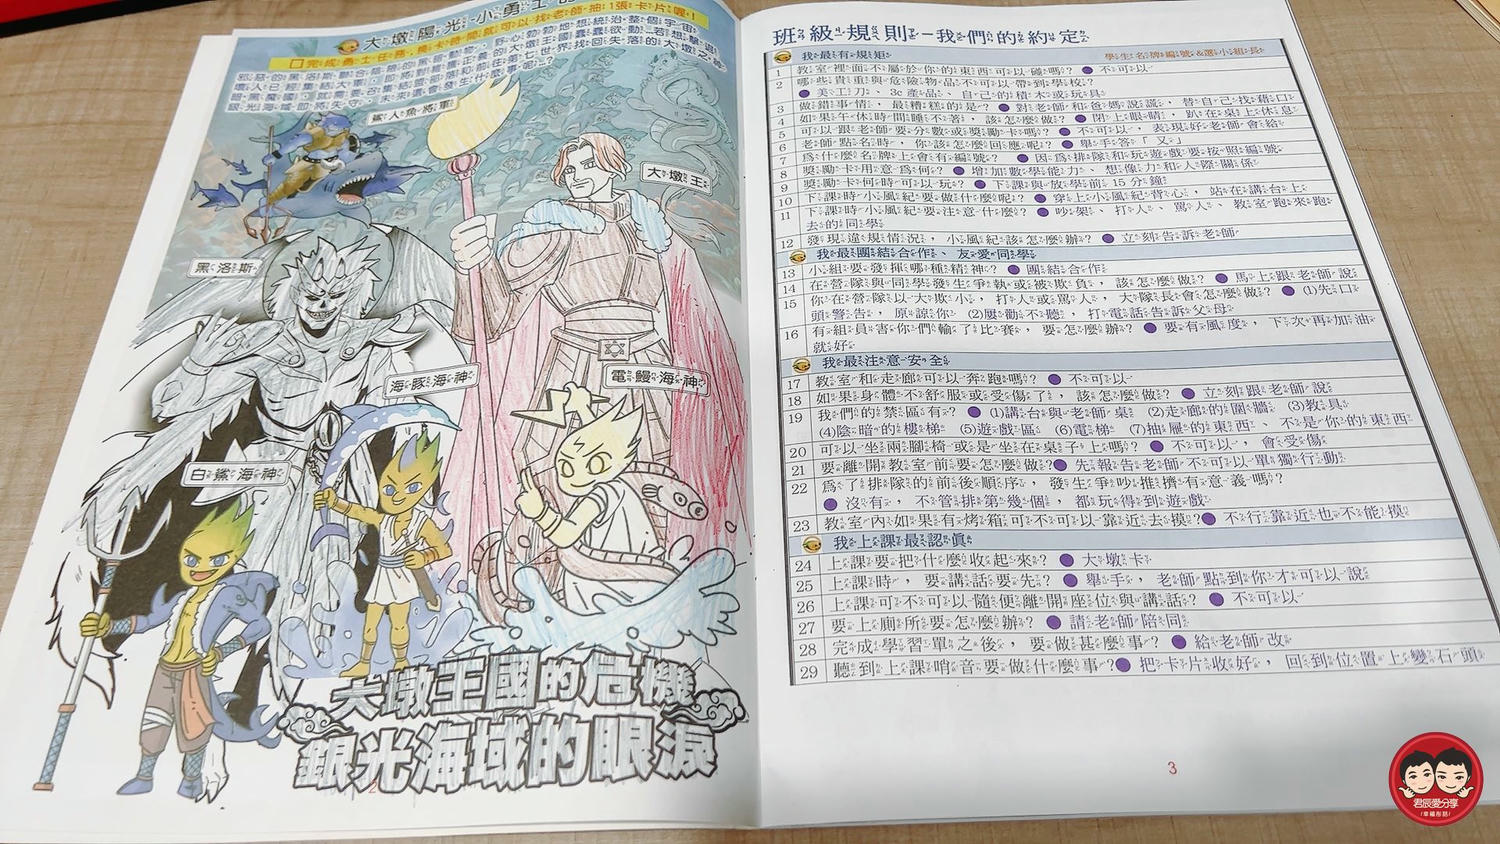 大墩陽光小勇士的
□完成勇士任務，機卡時間就可以找老師抽1張卡片喔！
鯊人魚將軍
大墩王
黑洛斯
海豚海神
電鰻海神
白鯊海神
大墩王國的危機
銀光海域的眼淚
2
班級規則－我們的約定
我最有規矩 學生名牌編號&選小組長
1 教室裡面不屬於你的東西可以碰嗎？●不可以
2 哪些貴重與危險物品不可以帶到學校？
●美工刀、3c產品、自己的積木或玩具
3 做錯事情，最糟糕的是？●對老師和爸媽說謊，替自己找藉口
4 如果午休時間睡不著，該怎麼做？●閉上眼睛，趴在桌上休息
5 可以跟老師要分數或獎勵卡嗎？●不可以，表現好老師會給
6 老師點名時，你該怎麼回應呢？●舉手答「又」
7 為什麼名牌上會有編號？●因為排隊和玩遊戲要按照編號
8 獎勵卡用意為何？●增加數學能力、想像力和人際關係
9 獎勵卡何時可以玩？●下課與放學前15分鐘
10 下課時小風紀要做什麼呢？●穿上小風紀背心，站在講台上
11 下課時小風紀要注意什麼？●吵架、打人、罵人、教室跑來跑
去的同學
12 發現違規情況，小風紀該怎麼辦？●立刻告訴老師
我最團結合作、友愛同學
13 小組要發揮哪種精神？●團結合作
14 在營隊與同學發生爭執或被欺負，該怎麼做？●馬上跟老師說
15 你在營隊以大欺小，打人或罵人，大隊長會怎麼做？●(1)先口
頭警告，原諒你 (2)屢勸不聽，打電話告訴父母
16 有組員害你們輸了比賽，要怎麼辦？●要有風度，下次再加油
就好
我最注意安全
17 教室和走廊可以奔跑嗎？●不可以
18 如果身體不舒服或受傷了，該怎麼做？●立刻跟老師說
19 我們的禁區有？●(1)講台與老師桌 (2)走廊的圍牆 (3)教具
(4)陰暗的樓梯 (5)遊戲區 (6)電梯 (7)抽屜的東西、不是你的東西
20 可以坐兩腳椅或是坐在桌子上嗎？●不可以，會受傷
21 要離開教室前要怎麼做？●先報告老師不可以單獨行動
22 為了排隊的前後順序，發生爭吵推擠有意義嗎？
●沒有，不管排第幾個，都玩得到遊戲
23 教室內如果有烤箱可不可以靠近去摸？●不行靠近也不能摸
我上課最認真
24 上課要把什麼收起來？●大墩卡
25 上課時，要講話要先？●舉手，老師點到你才可以說
26 上課可不可以隨便離開座位與講話？●不可以
27 要上廁所要怎麼辦？●請老師陪同
28 完成學習單之後，要做甚麼事？●給老師改
29 聽到上課哨音要做什麼事？●把卡片收好，回到位置上變石頭
3
君辰愛分享
/幸福布穀/